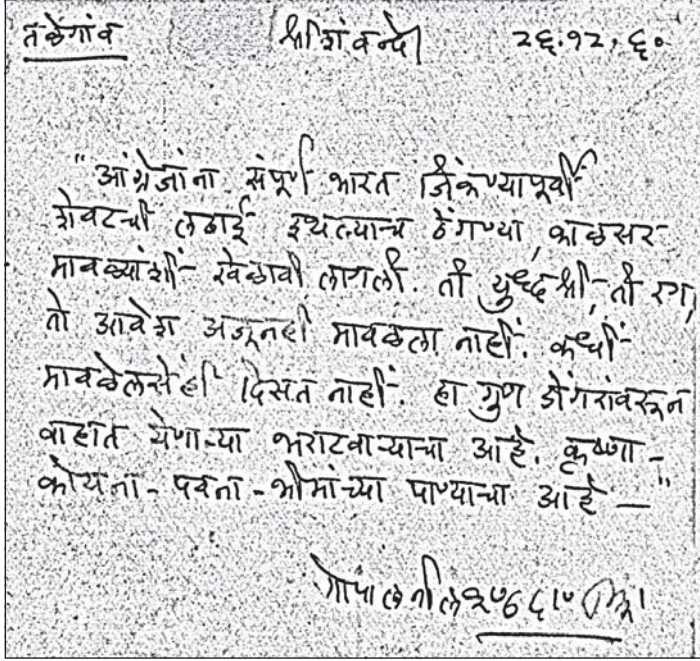 तळेगांव श्रीशंवन्दे २६.१२.६०
"आंग्रेजांना संपूर्ण भारत जिंकण्यापूर्वी
शेवटची लढाई इथल्याच ठेंगण्या, काळसर
मावळ्यांशी खेळावी लागली. ती युध्दश्री, ती रग,
तो आवेश अजूनही मावळला नाहीं. कधीं
मावळेलसेंही दिसत नाहीं. हा गुण डोंगरांवरून
वाहात येणाऱ्या भराटवाऱ्याचा आहे. कृष्णा -
कोयना - पवना - भीमांच्या पाण्याचा आहे —"
गोपाल नीलकण्ठ